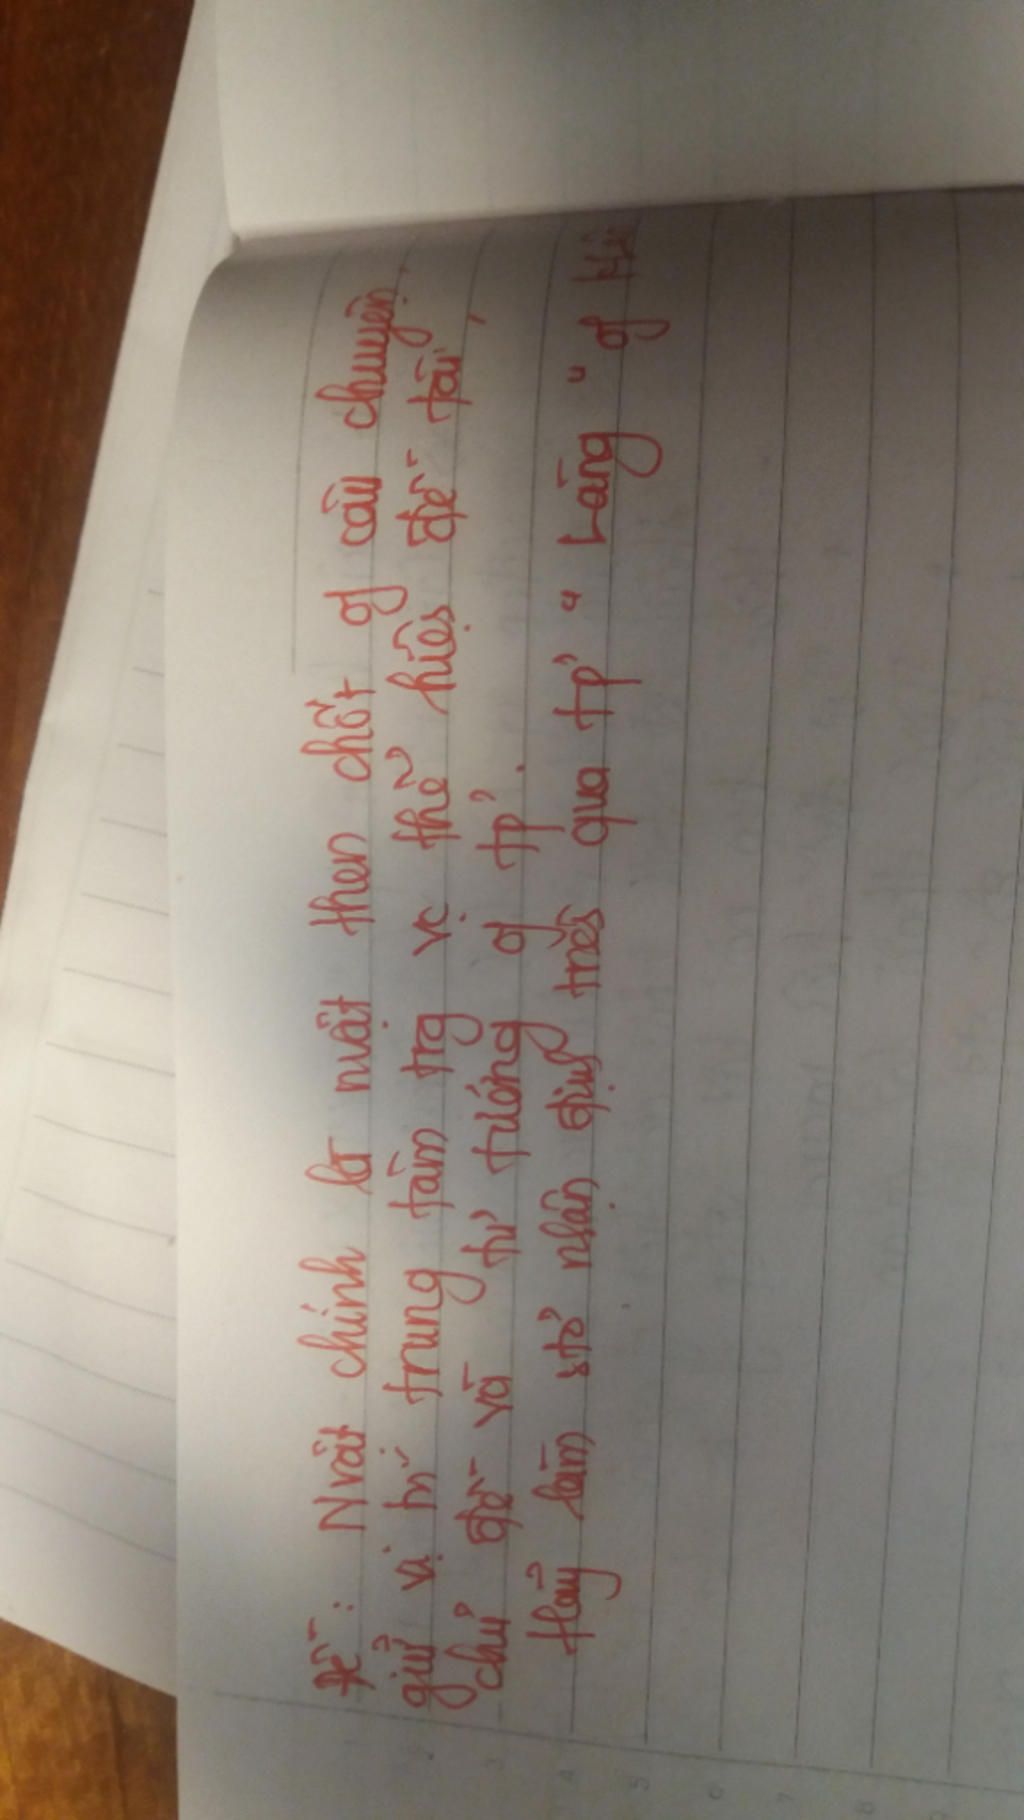 Đề: Nvật chính là mắt then chốt of câu chuyện,
giữ vị trí trung tâm trg vc thể hiện đề tài,
chủ đề và tư tưởng of tp'.
Hãy làm stỏ nhận định trên qua tp' " Làng " of